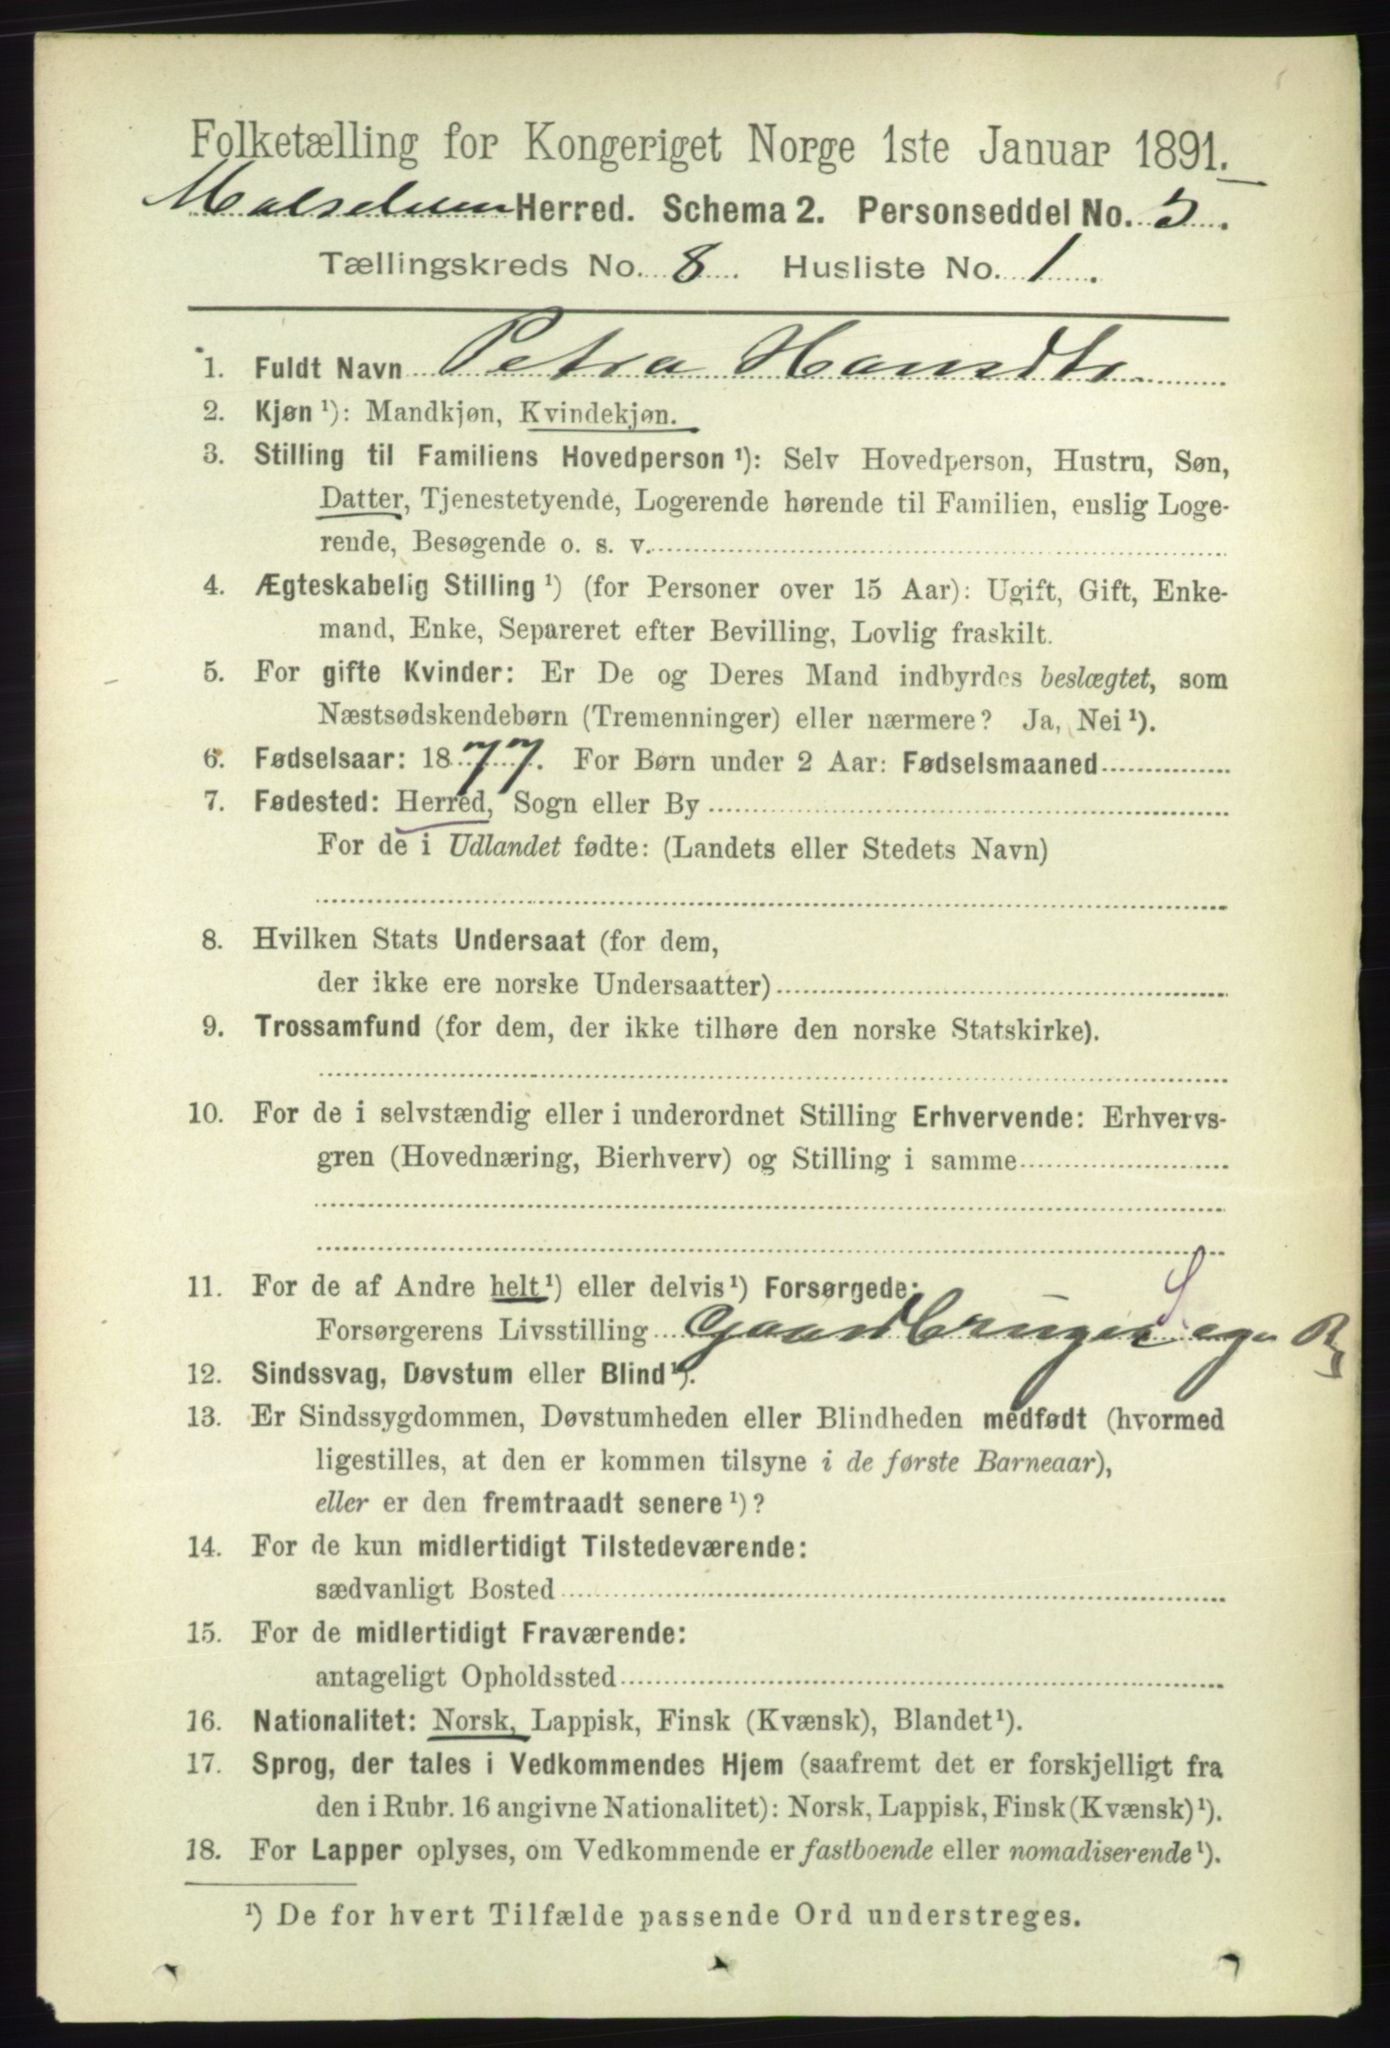 Folketælling for Kongeriget Norge 1ste Januar 1891.
Malselven Herred. Schema 2. Personseddel No. 5.
Tællingskreds No. 8. Husliste No. 1.
1. Fuldt Navn Petra Hansdtr
2. Kjøn ¹): Mandkjøn, Kvindekjøn.
3. Stilling til Familiens Hovedperson ¹): Selv Hovedperson, Hustru, Søn,
Datter, Tjenestetyende, Logerende hørende til Familien, enslig Loge-
rende, Besøgende o. s. v.
4. Ægteskabelig Stilling ¹) (for Personer over 15 Aar): Ugift, Gift, Enke-
mand, Enke, Separeret efter Bevilling, Lovlig fraskilt.
5. For gifte Kvinder: Er De og Deres Mand indbyrdes beslægtet, som
Næstsødskendebørn (Tremenninger) eller nærmere? Ja, Nei ¹).
6. Fødselsaar: 1877. For Børn under 2 Aar: Fødselsmaaned
7. Fødested: Herred, Sogn eller By
For de i Udlandet fødte: (Landets eller Stedets Navn)
8. Hvilken Stats Undersaat (for dem,
der ikke ere norske Undersaatter)
9. Trossamfund (for dem, der ikke tilhøre den norske Statskirke).
10. For de i selvstændig eller i underordnet Stilling Erhvervende: Erhvervs-
gren (Hovednæring, Bierhverv) og Stilling i samme
11. For de af Andre helt ¹) eller delvis ¹) Forsørgede:
Forsørgerens Livsstilling Gaardbruger S. eger
12. Sindssvag, Døvstum eller Blind ¹).
13. Er Sindssygdommen, Døvstumheden eller Blindheden medfødt (hvormed
ligestilles, at den er kommen tilsyne i de første Barneaar),
eller er den fremtraadt senere ¹)?
14. For de kun midlertidigt Tilstedeværende:
sædvanligt Bosted
15. For de midlertidigt Fraværende:
antageligt Opholdssted
16. Nationalitet: Norsk, Lappisk, Finsk (Kvænsk), Blandet ¹).
17. Sprog, der tales i Vedkommendes Hjem (saafremt det er forskjelligt fra
den i Rubr. 16 angivne Nationalitet): Norsk, Lappisk, Finsk (Kvænsk) ¹).
18. For Lapper oplyses, om Vedkommende er fastboende eller nomadiserende ¹).
¹) De for hvert Tilfælde passende Ord understreges.